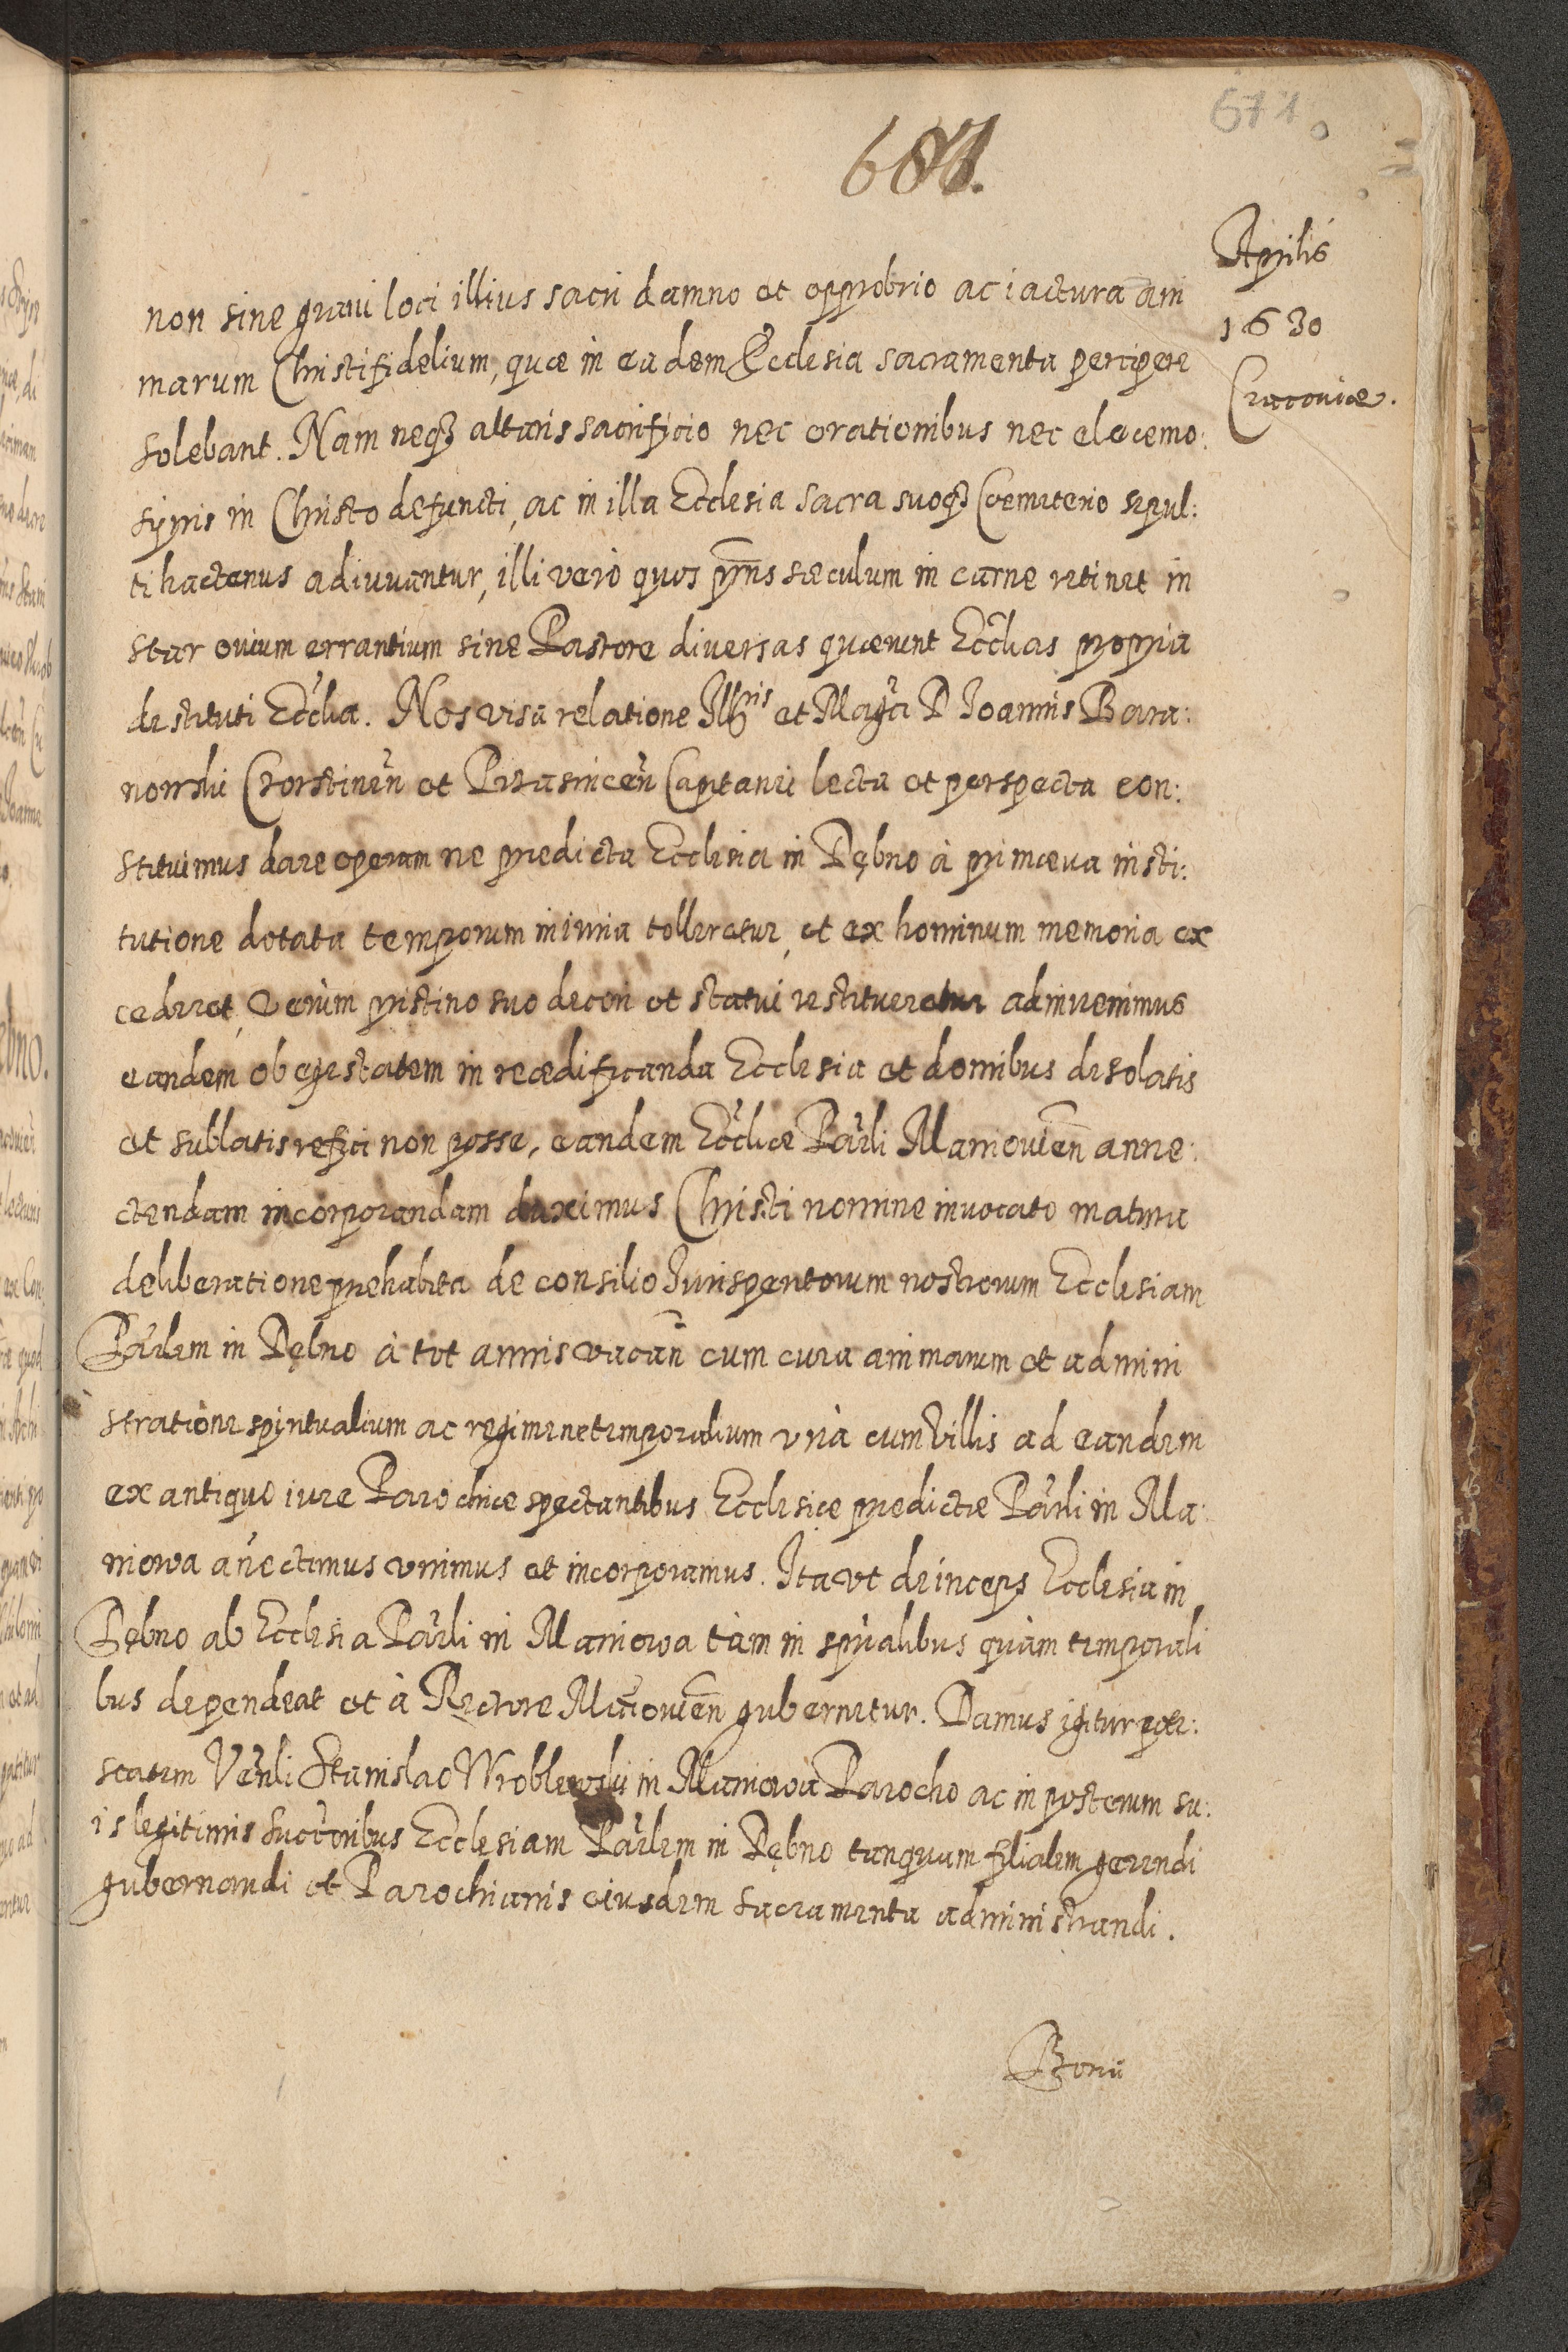 671
681.
Aprilis
1630
Cracoviæ.
non sine gravi loci illius sacri damno et opprobrio ac iactura ani
marum Christifidelium, quæ in eadem Ecclesia sacramenta percipere
solebant. Nam neq3 altaris sacrificio nec orationibus nec eleemo:
synis in Christo defuncti, ac in illa Ecclesia sacra suoq3 Cœmiterio sepul:
ti hactenus adiuvantur, illi verò quos pñs sæculum in carne retinet in
star ovium errantium sine Pastore diversas quærunt Ecclias propria
destituti Ecclia. Nos visa relatione Illris et Magci D Joannis Bara:
nowski Czorstinen et Przasnicen Capitanei lecta et perspecta con:
stituimus dare operam ne predicta Ecclesia in Dębno à primæva insti:
tutione dotata temporum iniuria tolleretur, et ex hominum memoria ex
cederet, Verùm pristino suo decori et statui restitueretur adinvenimus
eandem ob egestatem in reædificanda Ecclesia et domibus desolatis
et sublatis refici non posse, eandem Eccliæ Parli Maniovien anne:
ctendam incorporandam duximus Christi nomine invocato matura
deliberatione prehabita de consilio Jurisperitorum nostrorum Ecclesiam
Parlem in Dębno à tot annis vacañ cum cura animarum et admini
stratione spiritualium ac regimine temporalium vnà cum villis ad eandem
ex antiquo iure Parochiæ spectantibus Ecclesiæ predictæ Parli in Ma:
niowa añectimus vnimus et incorporamus. Ita vt deinceps Ecclesia in
Dębno ab Ecclesia Parli in Maniowa tàm in spũalibus quàm temporali
bus dependeat et à Rectore Maniovien gubernetur. Damus igitur pote:
statem Venli Stanislao Wroblewski in Maniowa Parocho ac in posterum su:
is legitimis succoribus Ecclesiam Parlem in Dębno tanquam filialem gerendi
gubernandi et Parochianis eiusdem sacramenta administrandi.
Bonii